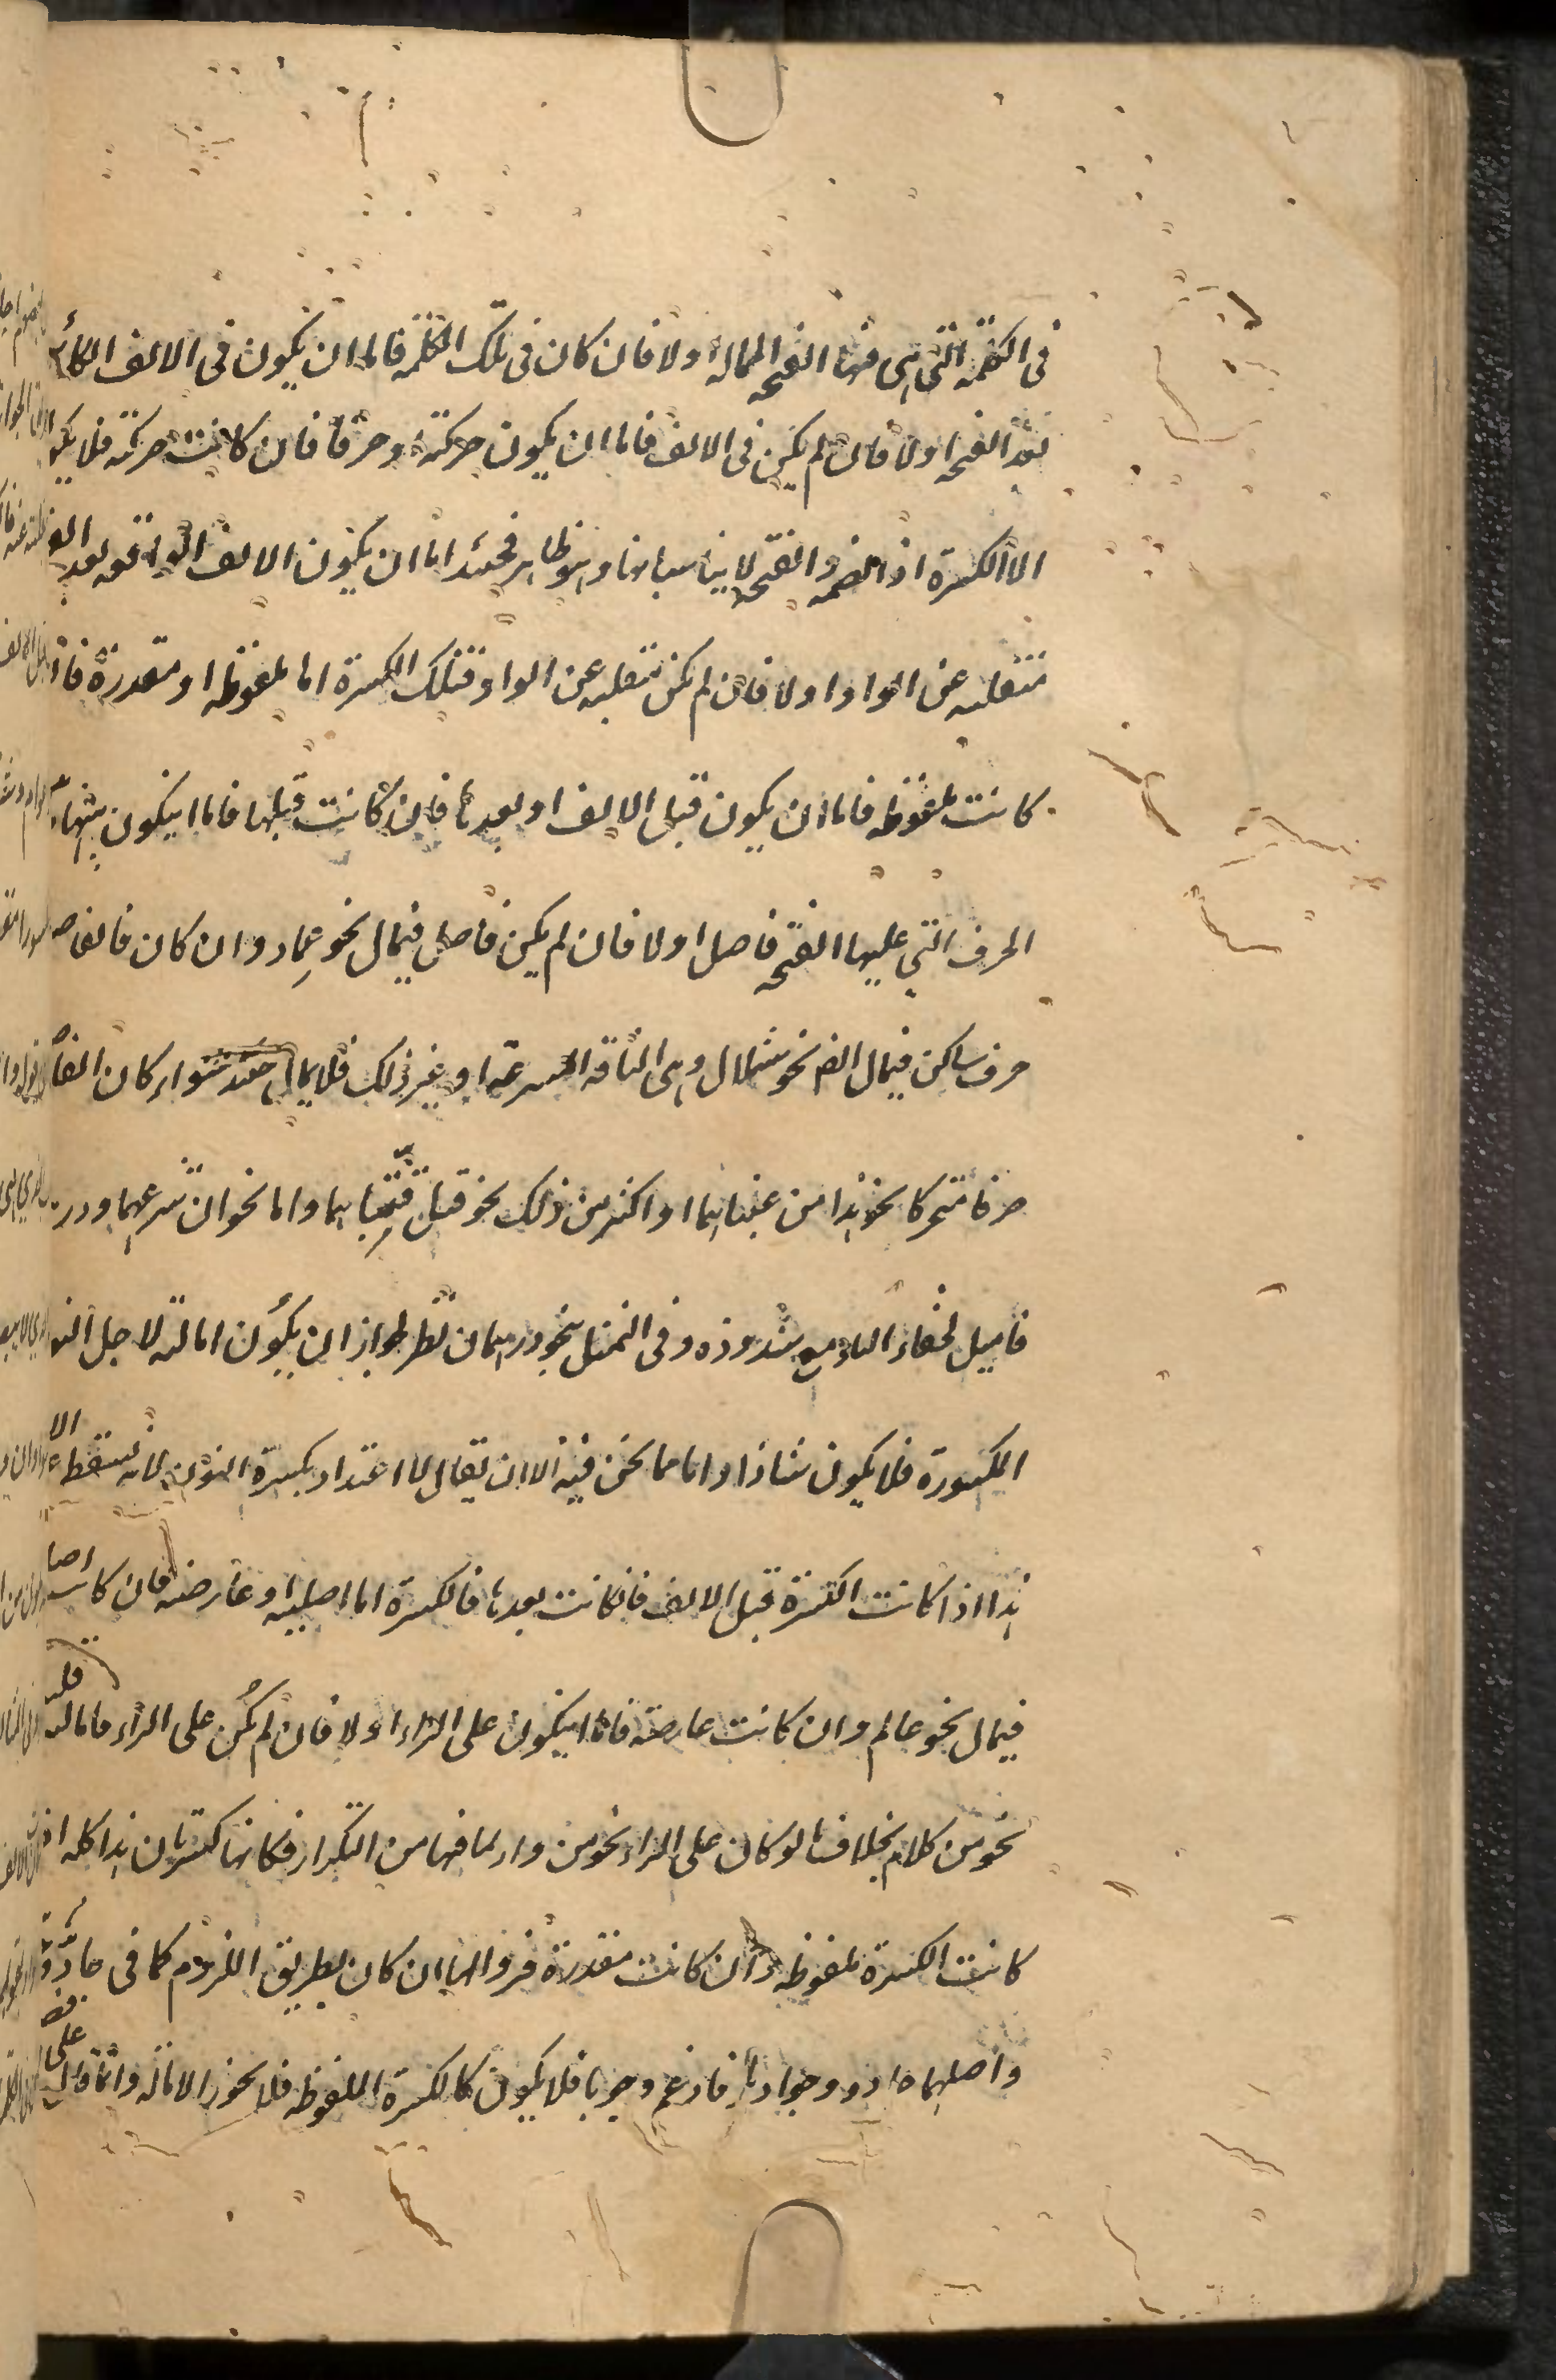 في الكلمة التي هي فيها الفتحة الممالة اولا فان كان في تلك الكلمة فاما ان يكون في الالف الكائنة
بعد الفتحة اولا فان لم يكن في الالف فاما ان يكون حركة او حرفا فان كانت حركة فلا يكون
الا الكسرة اذ الضمة والفتحة لا يناسبانها وهو ظاهر فحينئذ اما ان يكون الالف الواقعة بعد الفتحة
منقلبة عن الواو اولا فان لم يكن منقلبة عن الواو فتلك الكسرة اما ملفوظة او مقدرة فان
كانت ملفوظة فاما ان يكون قبل الالف او بعدها فان كانت قبلها فاما ايكون بينها و
الحرف التي عليها الفتحة فاصل اولا فان لم يكن فاصل فيمال نحو عماد وان كان فالفاصل
حرف ساكن فيمال ايضا نحو شملال وهي الناقة السرعة او غير ذلك فلا يمال حينئذ سواء كان الفا
حرفا متحركا نحو هذا من عنبنا ايما او اكثر من ذلك نحو قتل قتبا بها واما نحو ان ينزعها ودر
فاميل لخفاء الهاء مع شذوذه وفي التمثيل بنحو درهمان نظر لجواز ان يكون امالته لاجل النون
المكسورة فلا يكون شاذا واما مما نحن فيه الا ان يقال لا اعتداد بكسرة النون لانه يسقط الا
هذا اذا كانت الكسرة قبل الالف فانكانت بعدها فالكسرة اما اصلية او عارضة فان كانت اصلية
فيمال نحو عالم وان كانت عارضة فاما ايكون على الراء اولا فان لم يكن على الراء فامالته قليلة
نحو من كلام بخلاف ما لو كان على الراء نحو من دار لما فيها من التكرار فكانها كسرتان هذا كله اذا
كانت الكسرة ملفوظة وان كانت مقدرة فزوالها ان كان بطريق اللزوم كما في جاد و
واصلهما جادد وجوادد فادغم وجوبا فلا يكون كالكسرة الملفوظة فلا يجوز الامالة وانما قال على